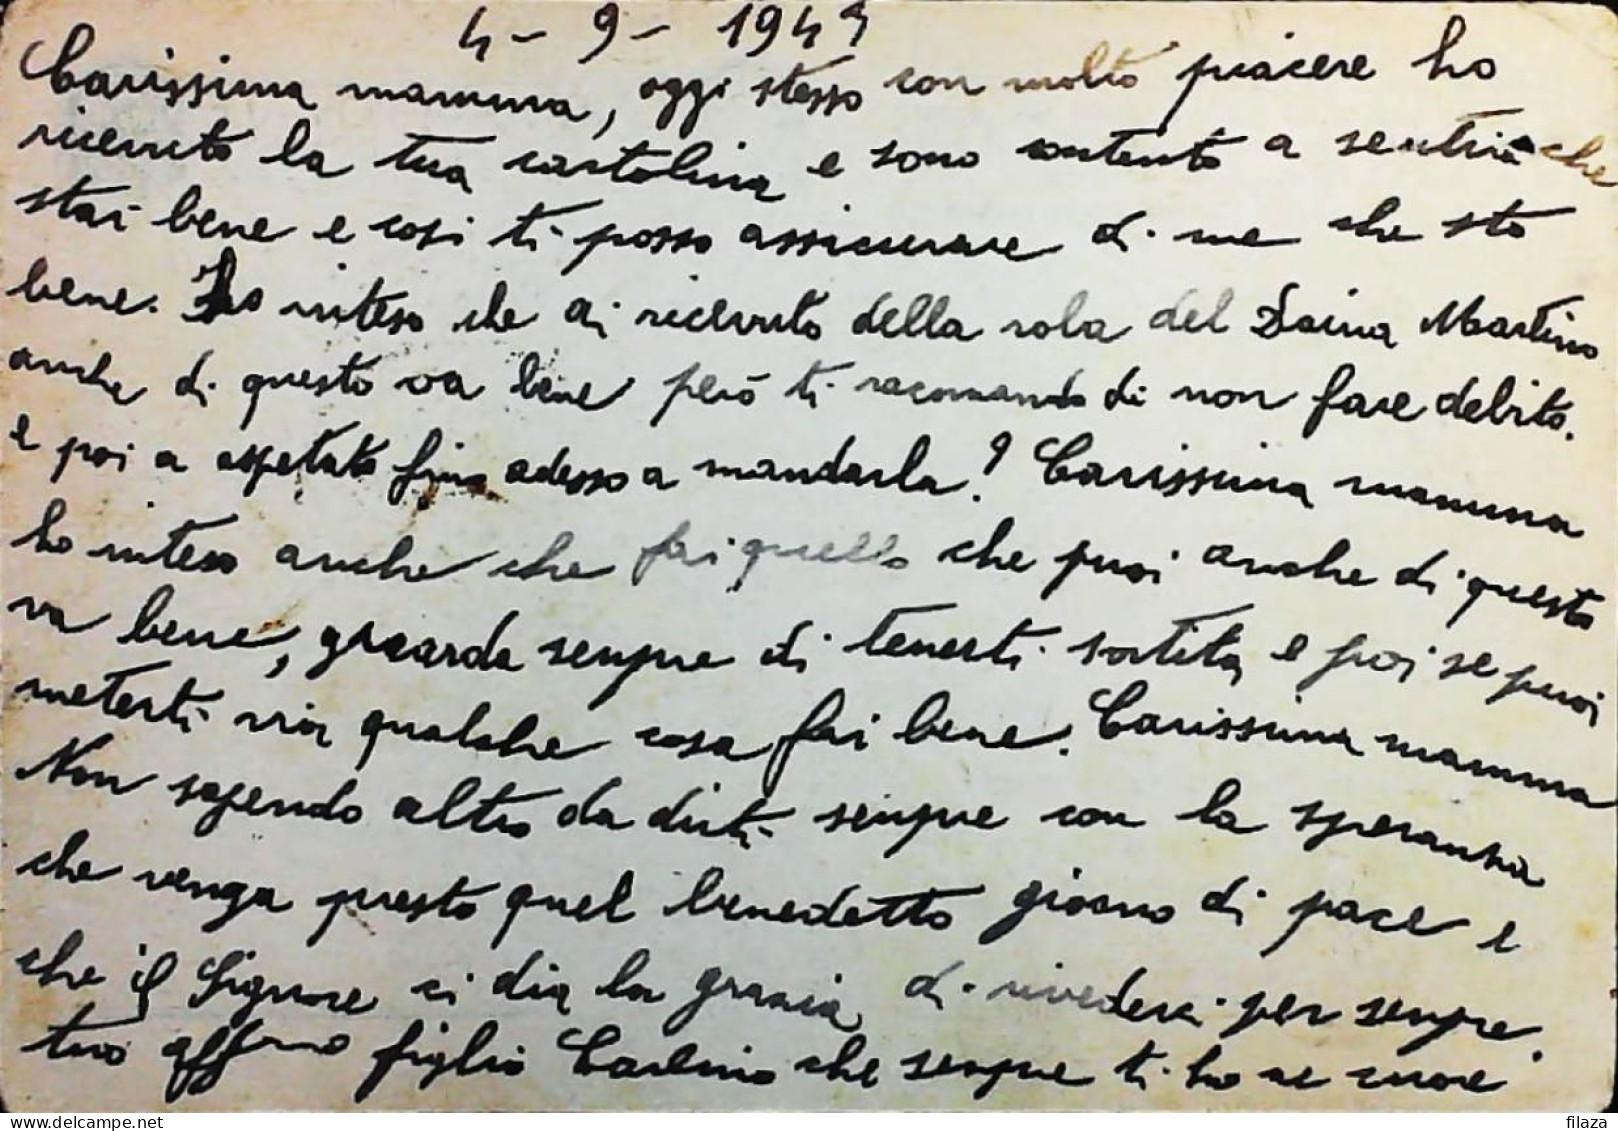 4-9-1944
Carissima mamma, oggi stesso con molto piacere ho
ricevuto la tua cartolina e sono contento a sentire che
stai bene e cosi ti posso assicurare di me che sto
bene. Ho inteso che ai ricevuto della roba del Martino
anche di questo va bene però ti racomando di non fare debito.
e poi a aspetato fino adesso a mandarla? Carissima mamma
ho inteso anche che fai quello che puoi anche di questo
va bene, guarda sempre di tenerti e poi se puoi
meterti via qualche cosa fai bene. Carissima mamma
Non sapendo altro da dirti sempre con la speranza
che venga presto quel benedetto giorno di pace e
che il Signore ci dia la grazia di rivederci per sempre.
tuo affmo figlio Carlino che sempre ti ho ne cuore
filaza